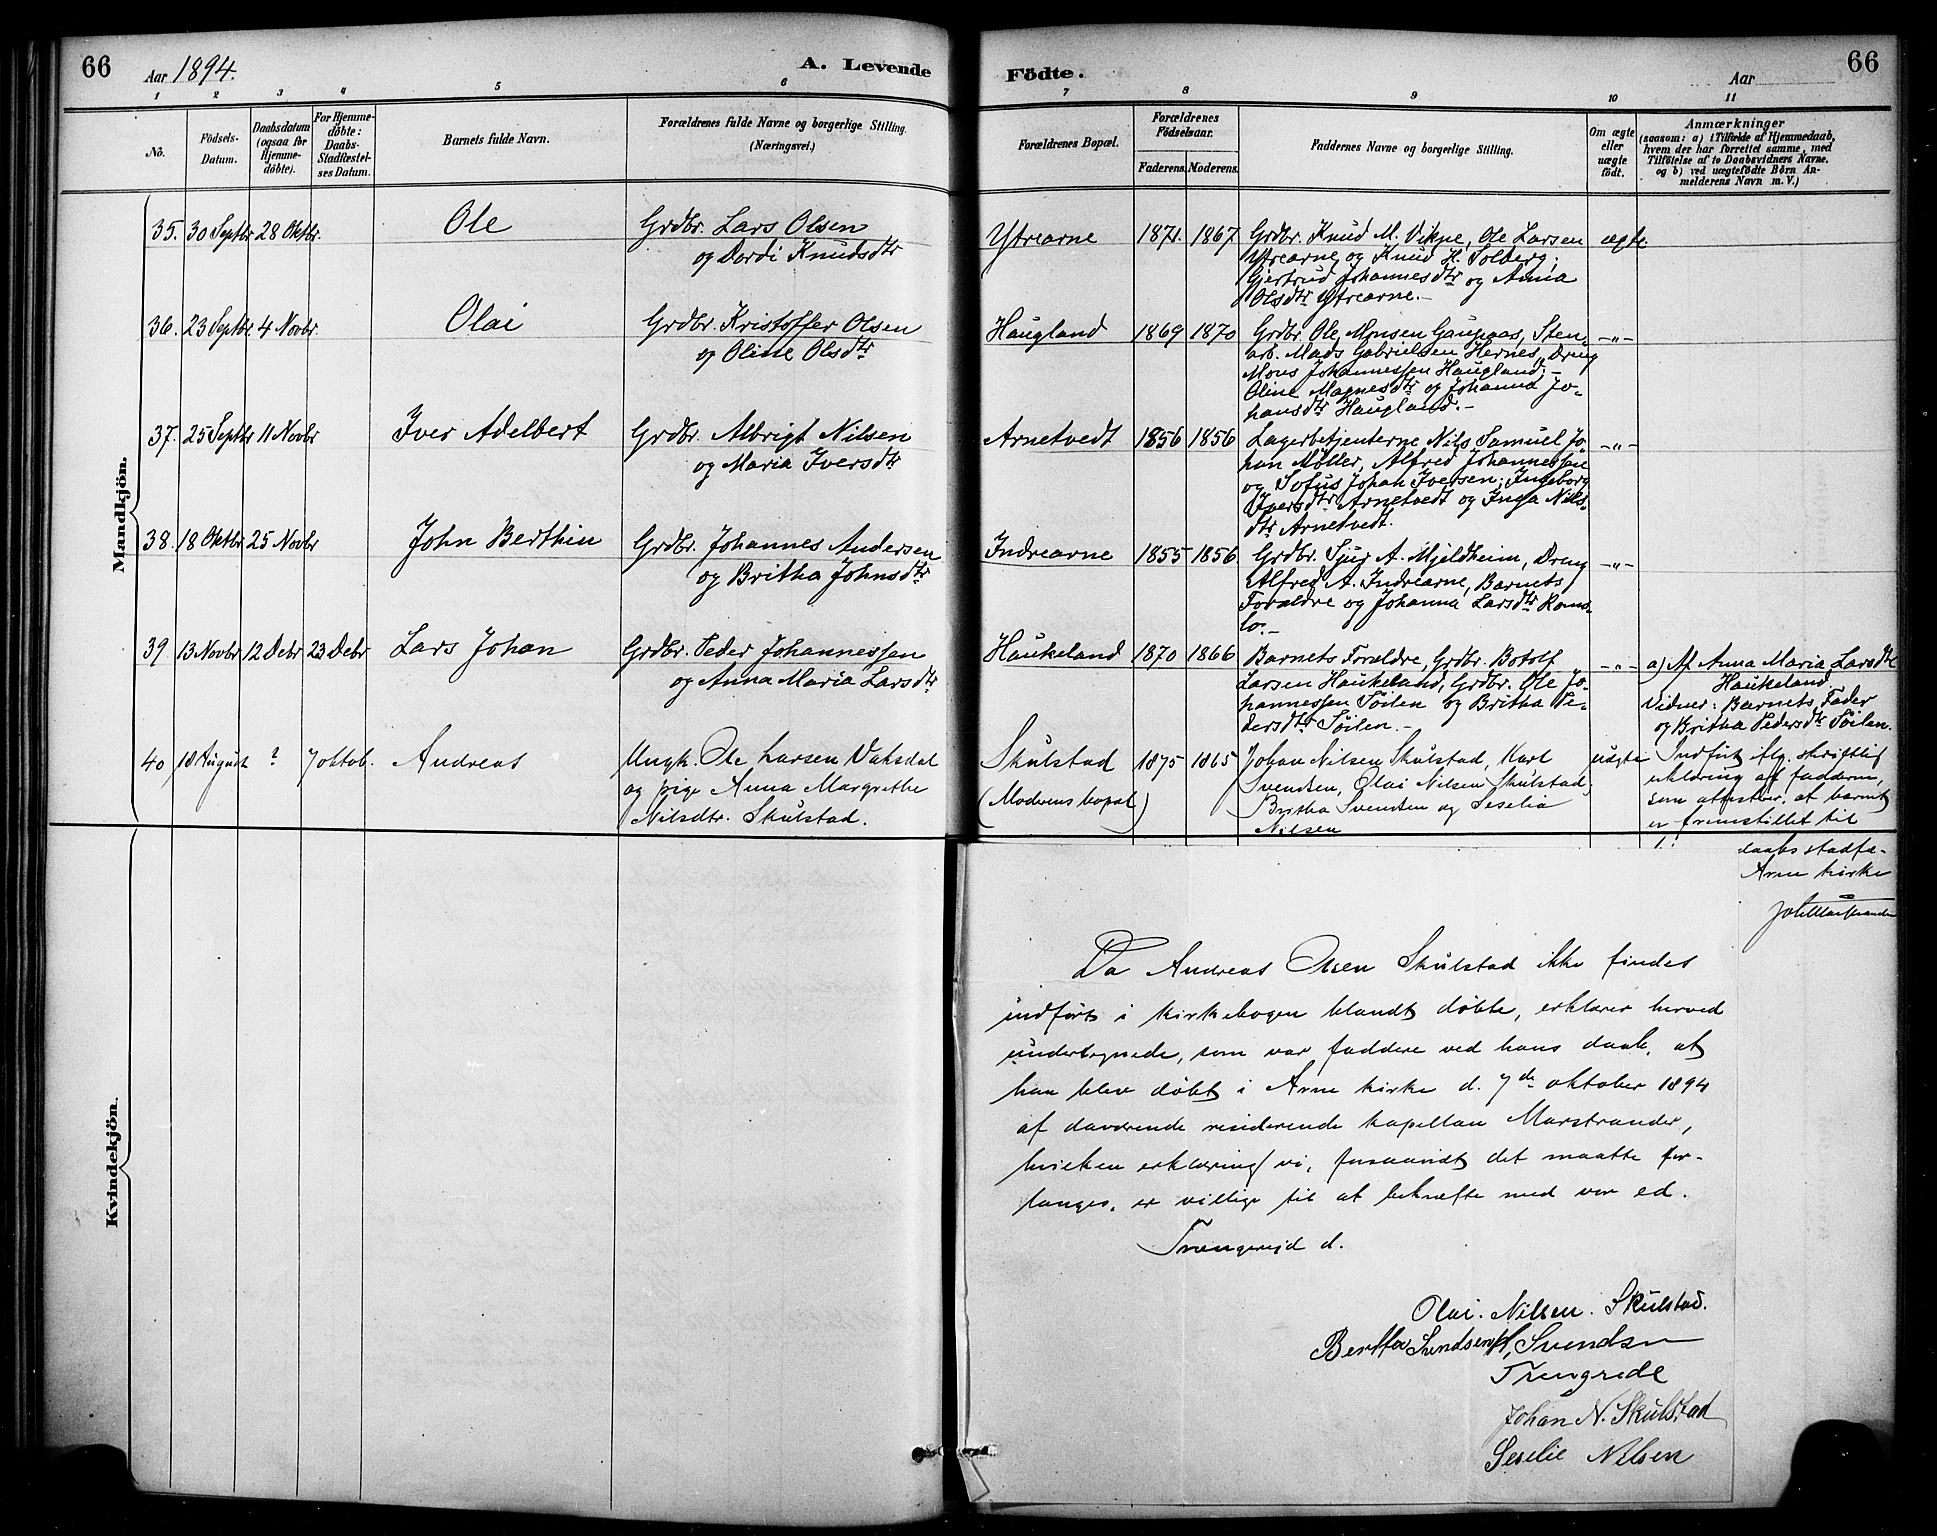 66
Aar 1894.
A. Levende
Födte.
Aar
66
1 2 3 4 5 6 7 8 9 10 11
No.
Födsels-Datum.
Daabsdatum (ogsaa for Hjemme-döbte).
For Hjemme-döbte: Daabs-Stadfæstel-ses Datum.
Barnets fulde Navn.
Forældrenes fulde Navne og borgerlige Stilling.
(Næringsvei.)
Forældrenes Bopæl.
Forældrenes Födselsaar.
Faderens. Moderens.
Faddernes Navne og borgerlige Stilling.
Om ægte eller uægte födt.
Anmærkninger
(saasom: a) i Tilfælde af Hjemmedaab,
hvem der har forrettet samme, med
Tilföielse af to Daabsvidners Navne.
og b) ved uægtefödte Börn An-
melderens Navn m. V.)
Mandkjön.
35. 30 Septbr 28 Oktbr. Ole Grdbr. Lars Olsen Ytrearne 1871. 1867 Grdbr. Knud M. Vikne, Ole Larsen ægte.
og Dordi Knudsdtr Ytrearne og Knud H. Solberg;
Gjertrud Johannesdtr og Anna
Olsdtr Ytrearne.-
36. 23 Septbr 4 Novbr. Olai Grdbr. Kristoffer Olsen Haugland 1869 1870 Grdbr. Ole Monsen Gaupaas, Sten- -"-
og Oline Olsdtr arb. Mads Gabrielsen Hernes, Dreng
Mons Johannessen Haugland;-
Oline Magnesdtr og Johanna Jo-
hansdtr Haugland.-
37. 25 Septbr 11 Novbr Iver Adelbert Grdbr. Albrigt Nilsen Arnetvedt 1856 1856 Lagerbetjenterne Nils Samuel Jo- -"-
og Maria Iversdtr han Møller, Alfred Johannessen
og Sofus Johan Iversen; Ingeborg
Iversdtr Arnetvedt og Inga Nils-
dtr Arnetvedt.
38. 18 Oktbr 25 Novbr John Berthin Grdbr. Johannes Andersen Indrearne 1855 1856. Grdbr. Sjur A. Mjeldheim, Dreng -"-
og Britha Johnsdtr Alfred A. Indrearne, Barnets
Forældre og Johanna Larsdtr Roms-
lo.-
39 13 Novbr 12 Debr 23 Debr Lars Johan Grdbr. Peder Johannessen Haukeland 1870 1866 Barnets Forældre, Grdbr. Botolf -"- a) Af Anna Maria Larsdtr
og Anna Maria Larsdtr Larsen Haukeland, Grdbr. Ole Jo- Haukeland
hannessen Søilen og Britha Pe- Vidner: Barnets Fader
dersdtr Søilen.- og Britha Pedersdtr Søilen.
40 18 August ? 7 oktob. Andreas Ungk. Ole Larsen Vaksdal Skulstad 1875 1865 Johan Nilsen Skulstad, Karl uægte Indført iflg. skriftlig
og pige Anna Margrethe (Moderens bopæl) Svendsen, Olai Nilsen Skulstad, erklæring af fadderne,
Nilsdtr. Skulstad. Britha Svendsen og Seselia som attesterer, at barnet
Nilsen er fremstillet til
daabs stadfæ-
Arne kirke
Kvindekjön.
Da Andreas Olsen Skulstad ikke findes
indført i kirkebogen blandt døbte, erklærer herved
undertegnede, som var faddere ved hans daab, at
han blev døbt i Arne kirke d. 7de oktober 1894
af daværende residerende kapellan Marstrander,
hvilken erklæring vi, forsaavidt det maatte for-
langes, er villige til at bekræfte med vor ed.
Trengereid d.
Olai. Nilsen. Skulstad.
Bertha Svendsen K, Svendsen
Trengrede
Johan N. Skulstad
Seselie Nilsen